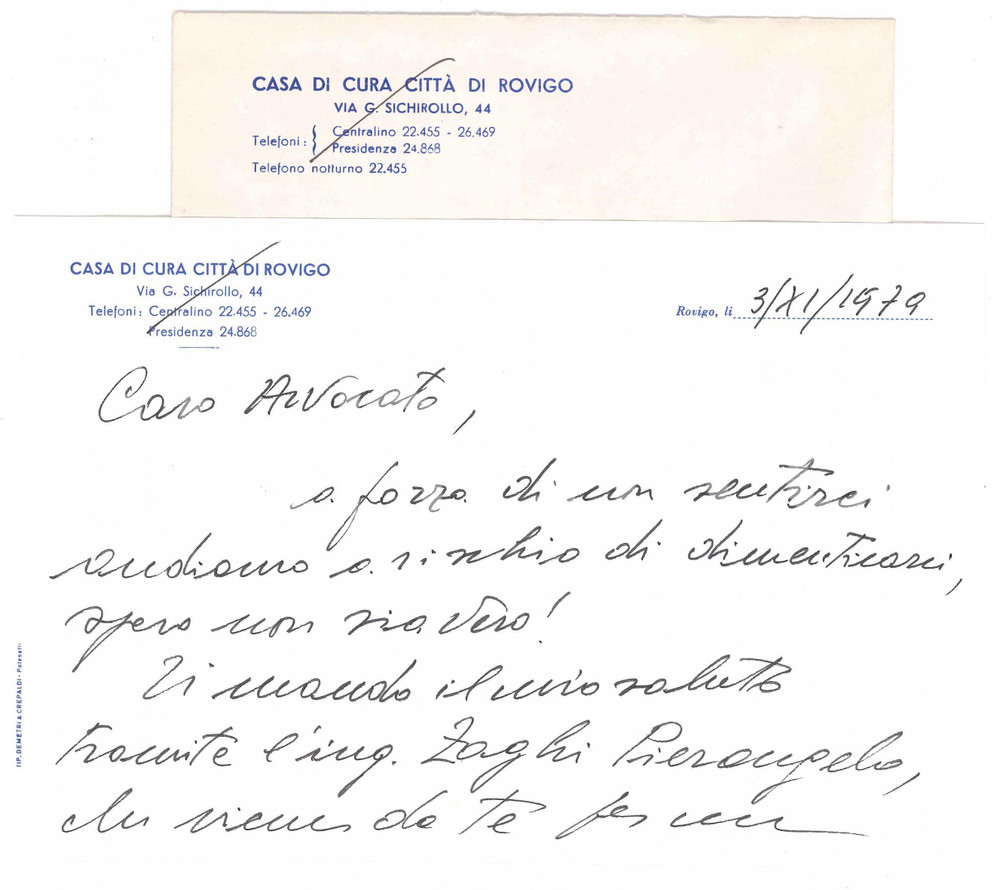 CASA DI CURA CITTÀ DI ROVIGO
VIA G. SICHIROLLO, 44
Telefoni: Centralino 22.455 - 26.469
Presidenza 24.868
Telefono notturno 22.455
CASA DI CURA CITTÀ DI ROVIGO
Via G. Sichirollo, 44
Telefoni: Centralino 22.455 - 26.469
Presidenza 24.868
Rovigo, li 3/XI/1979
Caro Avvocato,
a forza di non sentirci
andiamo a rischio di dimenticarci,
spero non sia vero!
Ti mando il mio saluto
tramite l'ing. Zaghi Pierangelo,
che viene da te per un
TIP. DEMETRI & CREPALDI - Polesella